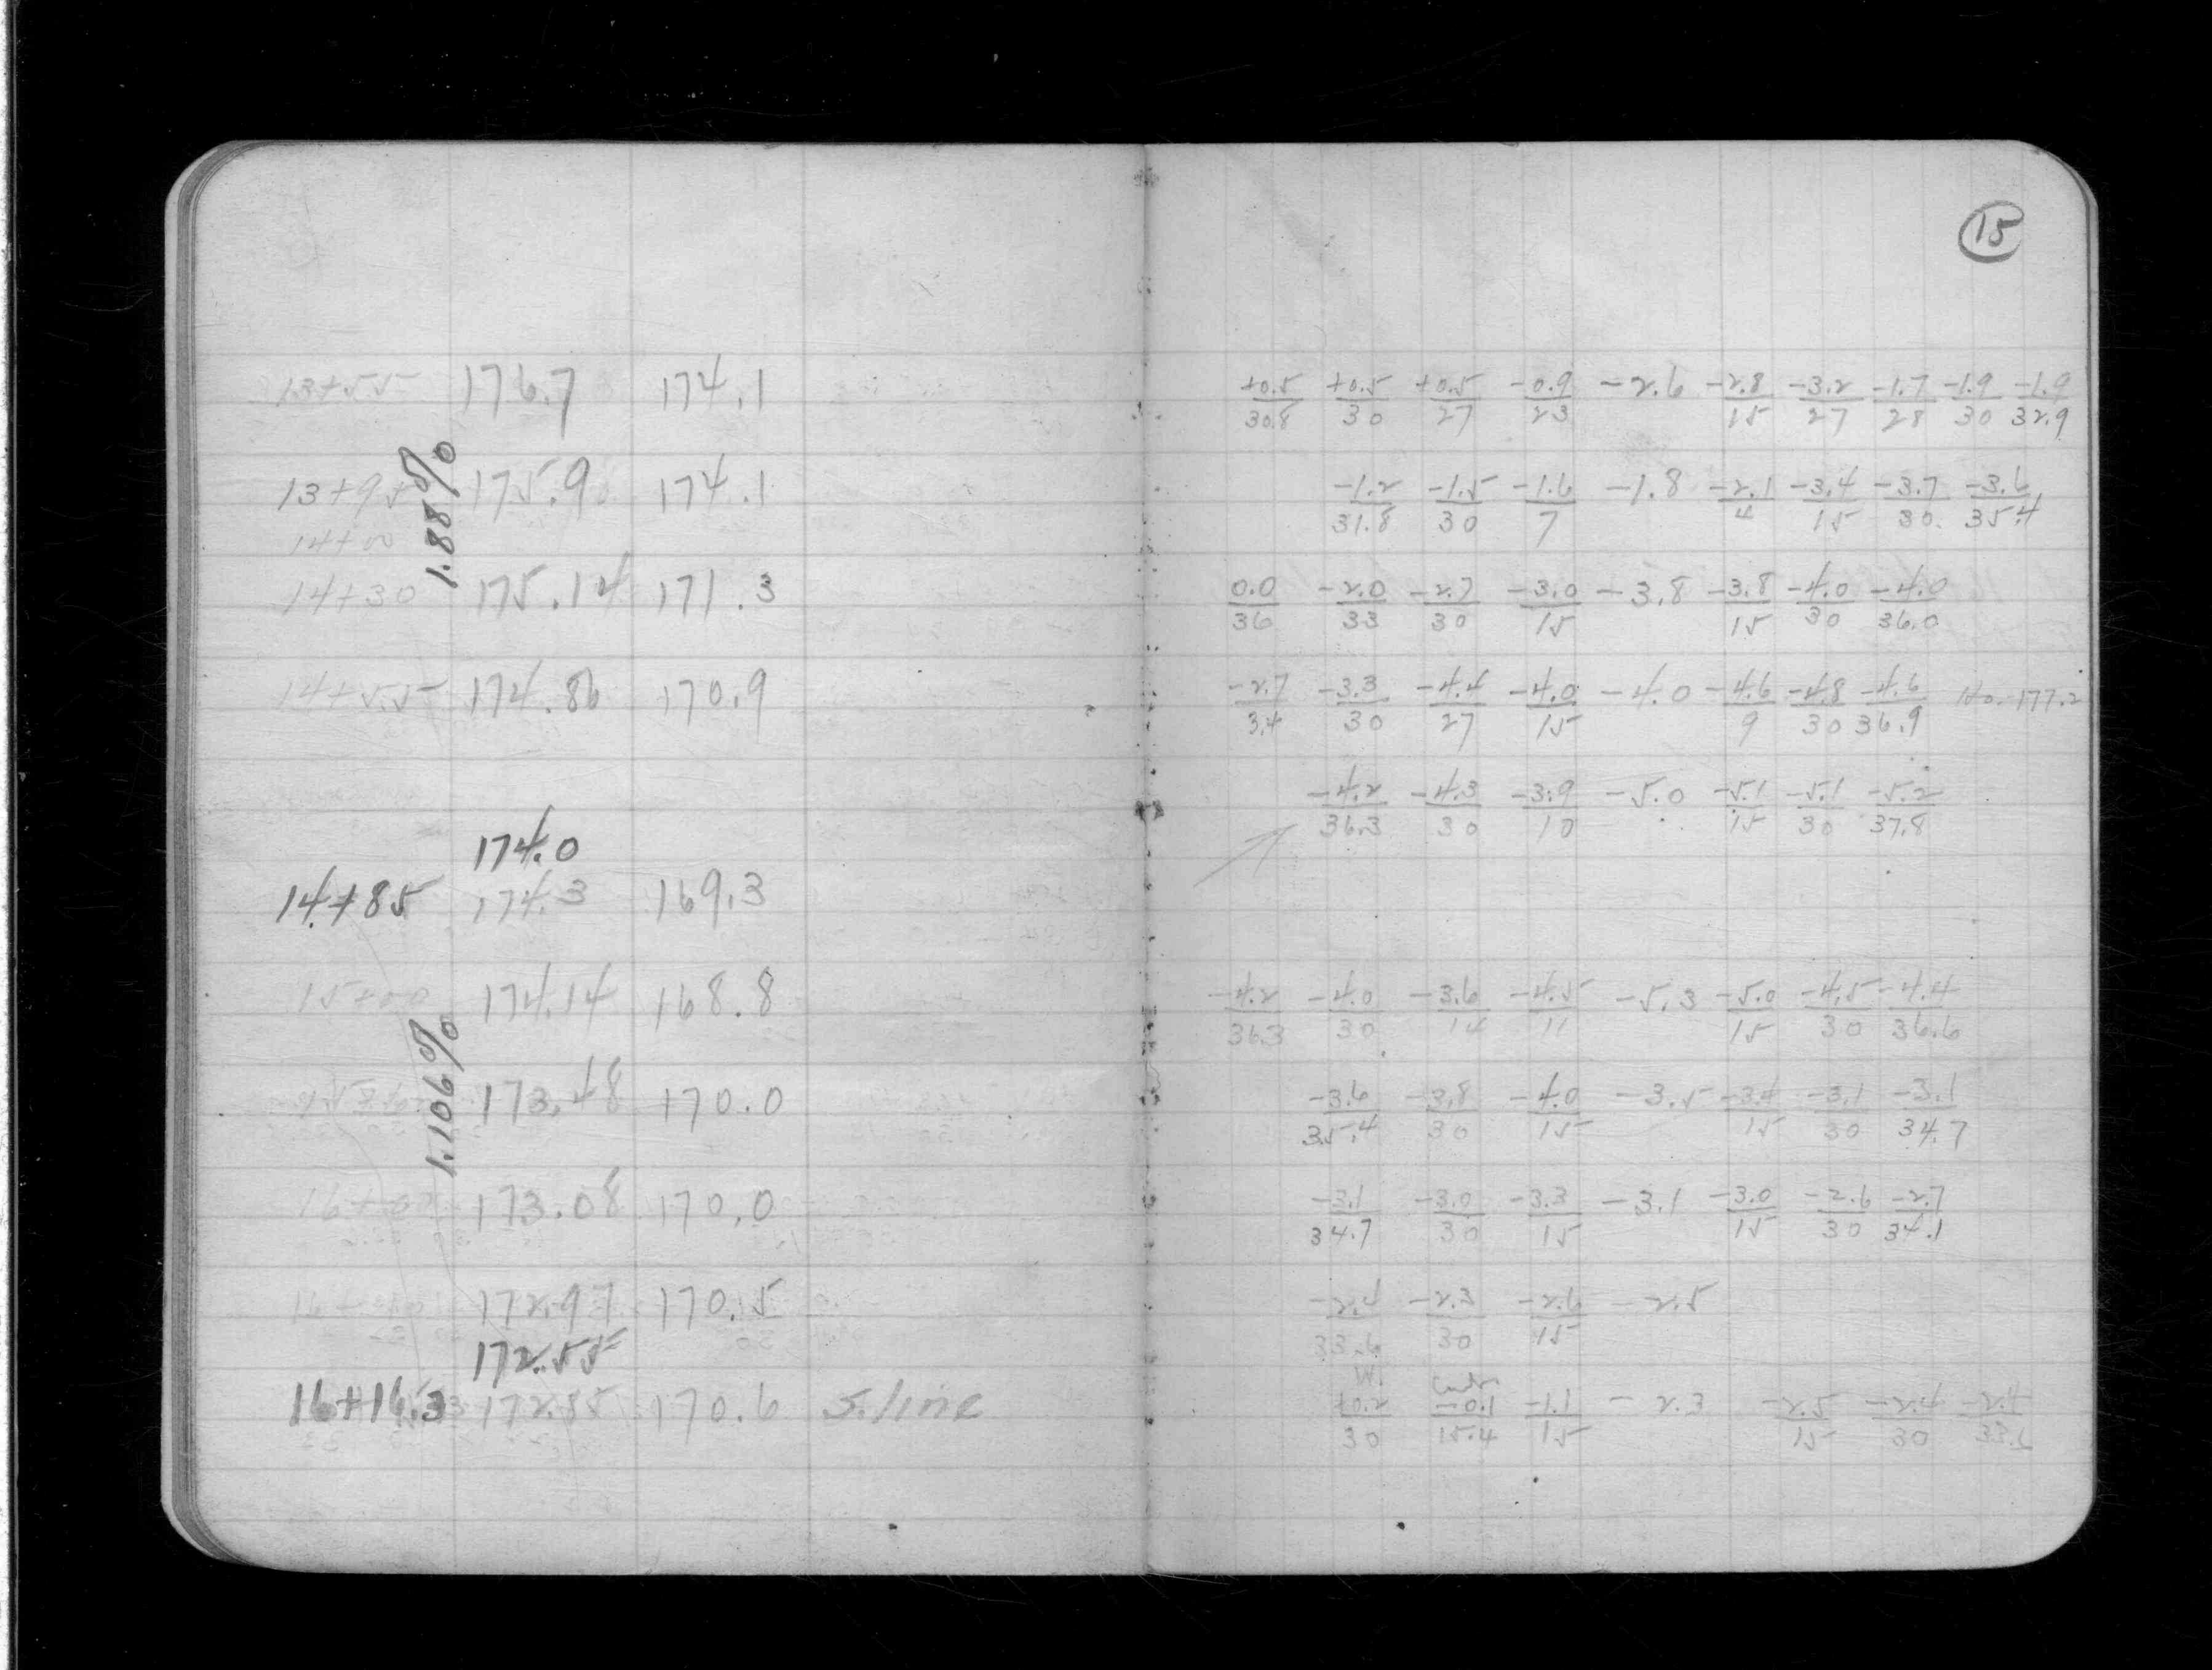 15
13+55 176.7 174.1 +0.5/30.8 +0.5/30 +0.5/27 -0.9/23 -2.6 -2.8/15 -3.2/27 -1.7/28 -1.9/30 -1.9/32.9
1.88%
13+95 175.9 174.1 -1.2/31.8 -1.5/30 -1.6/7 -1.8 -2.1/4 -3.4/15 -3.7/30 -3.6/35.4
14+00
14+30 175.14 171.3 0.0/36 -2.0/33 -2.7/30 -3.0/15 -3.8 -3.8/15 -4.0/30 -4.0/36.0
14+55 174.86 170.9 -2.7/34 -3.3/30 -4.4/27 -4.0/15 -4.0 -4.6/9 -4.8/30 -4.6/36.9 177.2
-4.2/36.3 -4.3/30 -3.9/10 -5.0 -5.1/15 -5.1/30 -5.2/37.8
174.0
14+85 174.3 169.3
15+00 174.14 168.8 -4.2/36.3 -4.0/30 -3.6/14 -4.5/11 -5.3 -5.0/15 -4.5/30 -4.4/36.6
1.106%
173.48 170.0 -3.6/35.4 -3.8/30 -4.0/15 -3.5 -3.4/15 -3.1/30 -3.1/34.7
16+00 173.08 170.0 -3.1/34.7 -3.0/30 -3.3/15 -3.1 -3.0/15 -2.6/30 -2.7/34.1
172.97 170.5 -2.4/33.6 -2.3/30 -2.6/15 -2.5
172.55
16+16.3 172.85 170.6 S. line +0.2/30 -0.1/15.4 -1.1/15 -2.3 -2.5/15 -2.4/30 -2.4/33.6